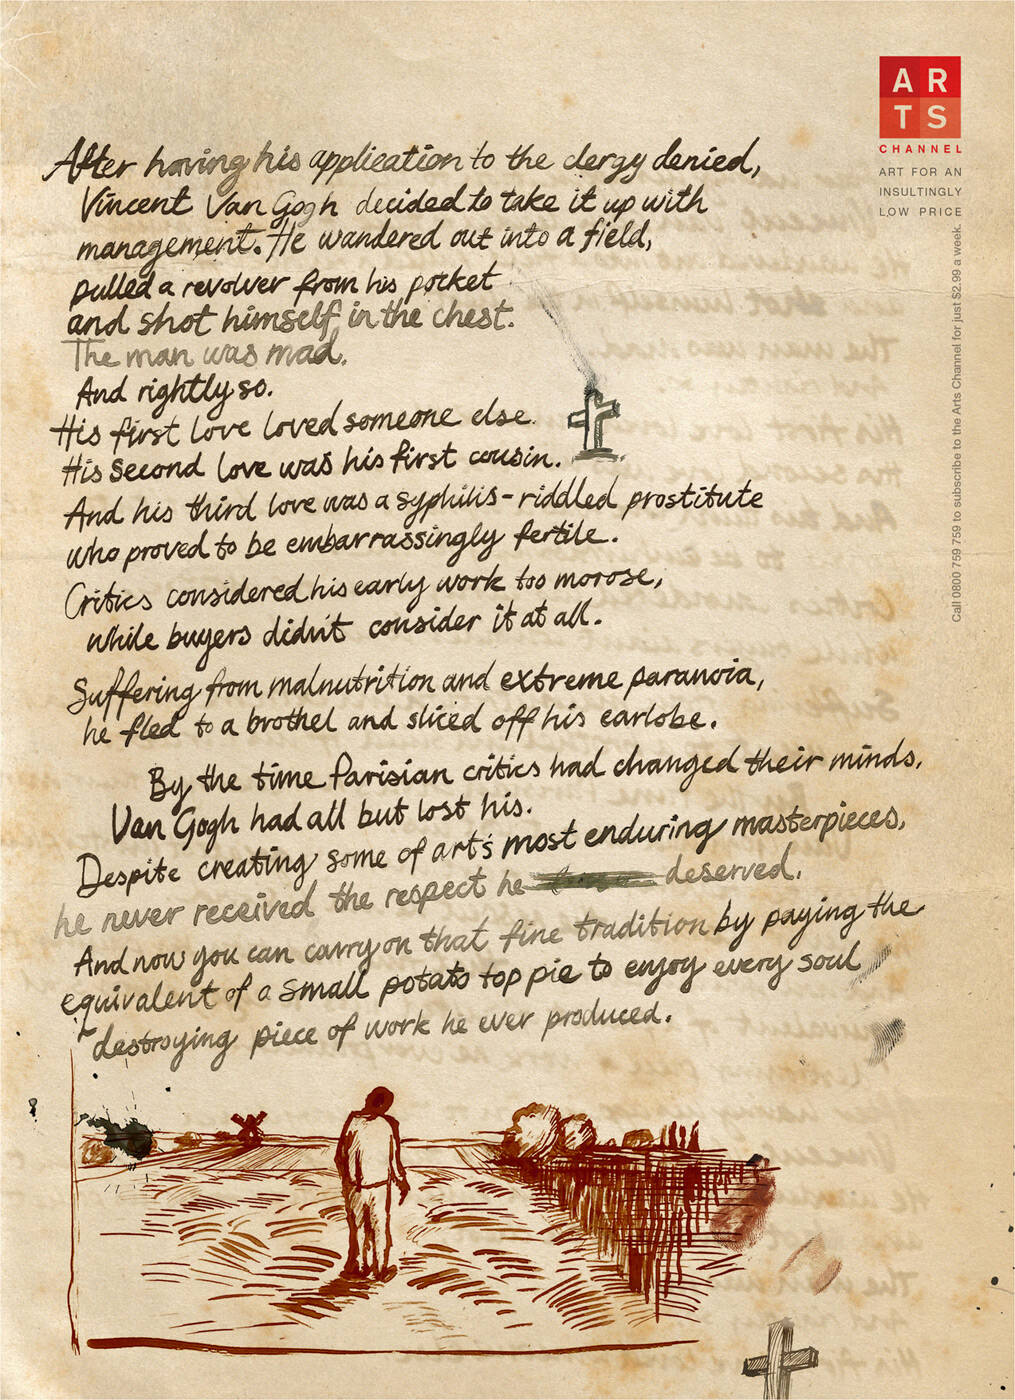 AR
TS
CHANNEL
ART FOR AN
INSULTINGLY
LOW PRICE
Call 0800 759 759 to subscribe to the Arts Channel for just $2.99 a week.
After having his application to the clergy denied,
Vincent Van Gogh decided to take it up with
management. He wandered out into a field,
pulled a revolver from his pocket
and shot himself in the chest.
The man was mad.
And rightly so.
His first love loved someone else.
His second love was his first cousin.
And his third love was a syphilis-riddled prostitute
who proved to be embarrassingly fertile.
Critics considered his early work too morose,
while buyers didn't consider it at all.
Suffering from malnutrition and extreme paranoia,
he fled to a brothel and sliced off his earlobe.
By the time Parisian critics had changed their minds,
Van Gogh had all but lost his.
Despite creating some of art's most enduring masterpieces,
he never received the respect he deserved.
And now you can carry on that fine tradition by paying the
equivalent of a small potato top pie to enjoy every soul
destroying piece of work he ever produced.